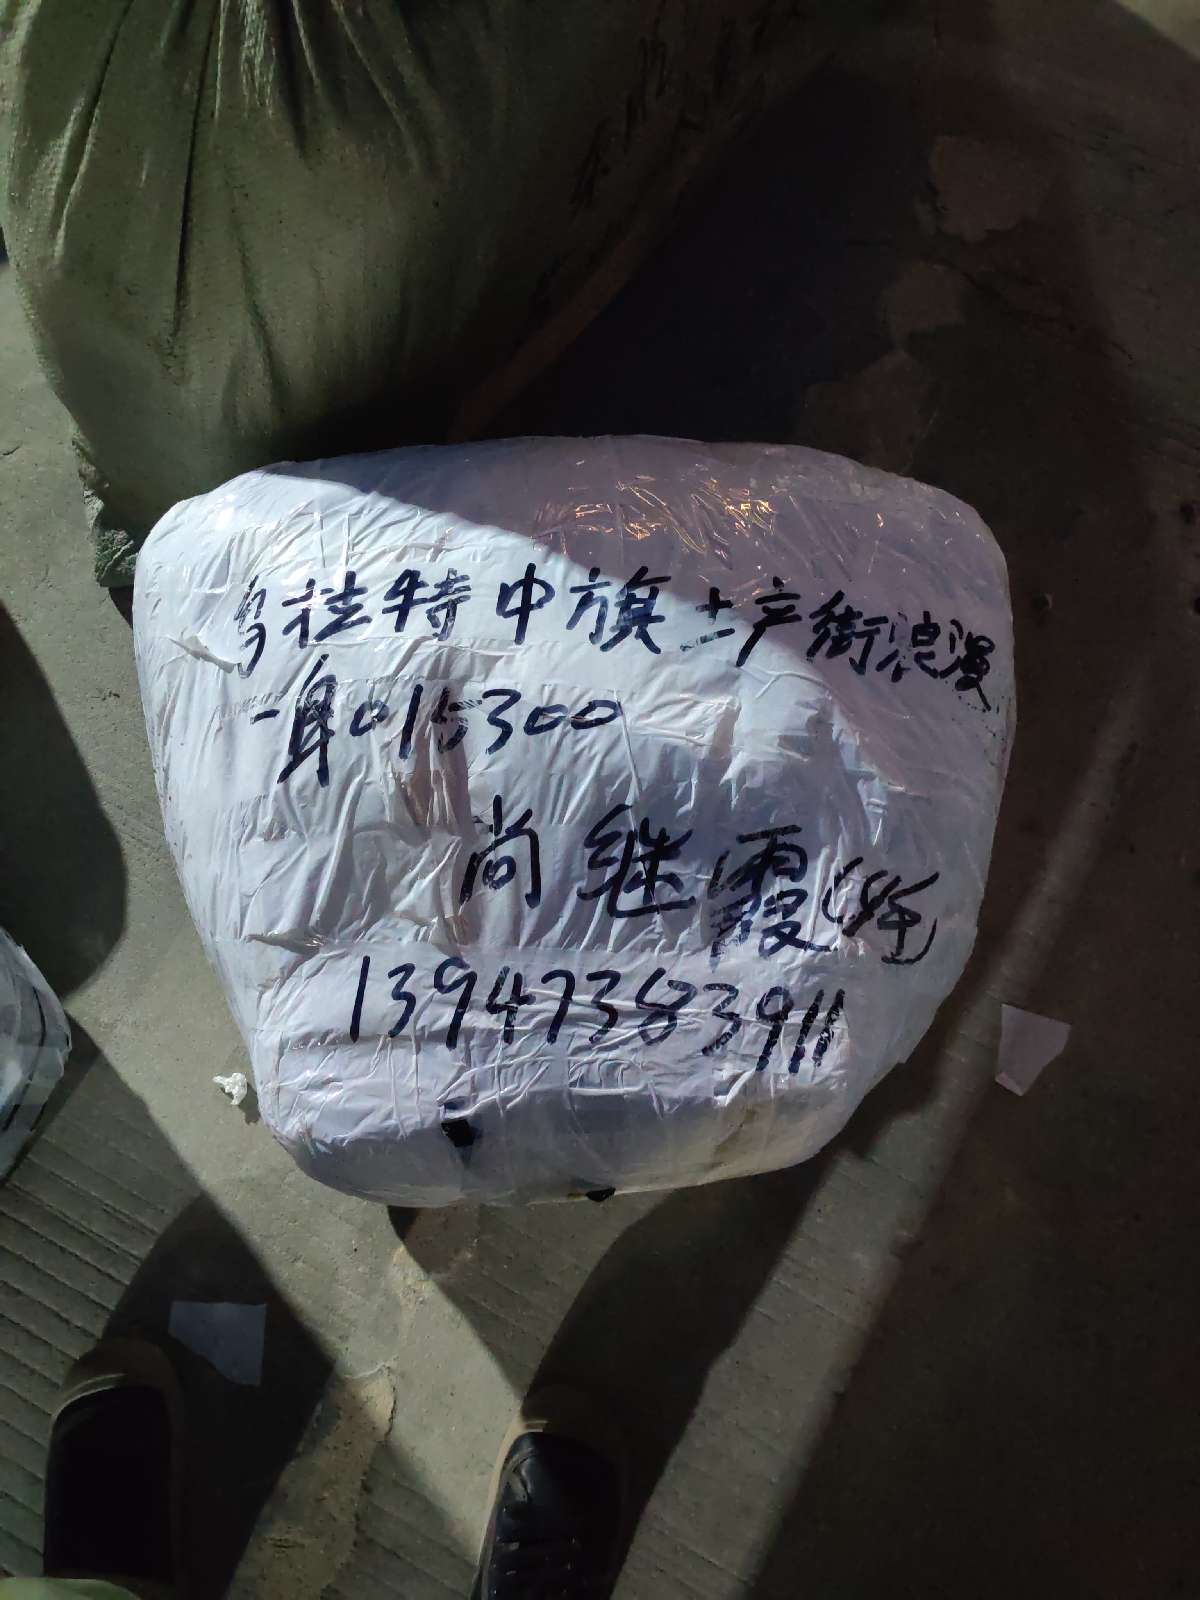 乌拉特中旗土产街浪漫
一身015300
尚继霞
13947383911